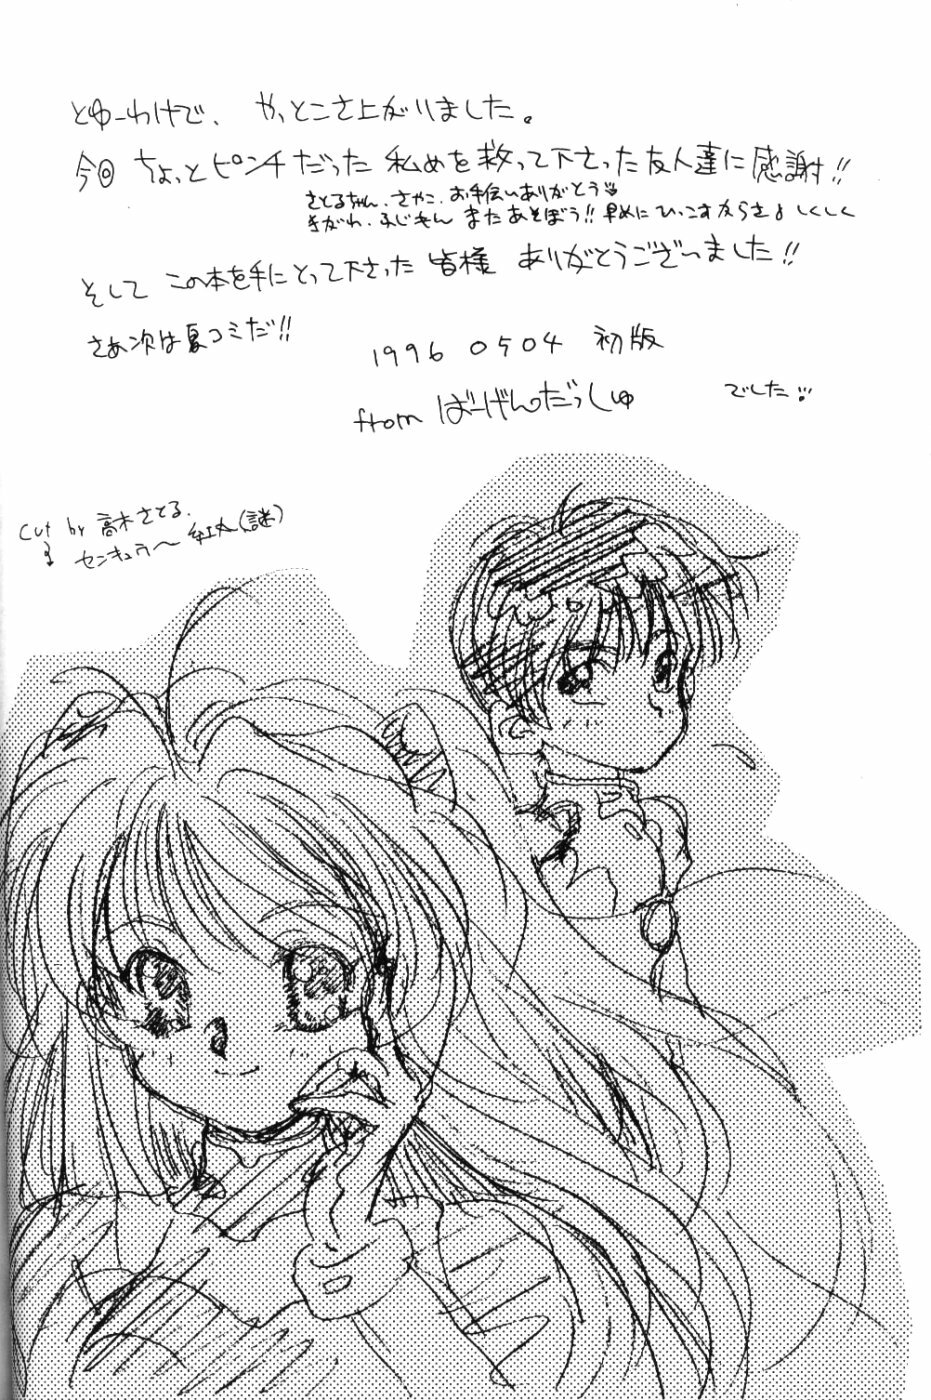 とゆーわけで、やっとこさ上がりました。
今回ちょっとピンチだった私めを救って下さった友人達に感謝!!
さとるちゃん、さやこ、お手伝いありがとう
きがわ、ふじきん またあそぼう!! 早めにひっこすからさぁ しくしく
そしてこの本を手にとって下さった皆様 ありがとうございました!!
さあ次は夏コミだ!!
1996 0504 初版
from ばーげんだっしゅ でした
cut by 高木さとる
センキュゥ〜 紅丸(謎)